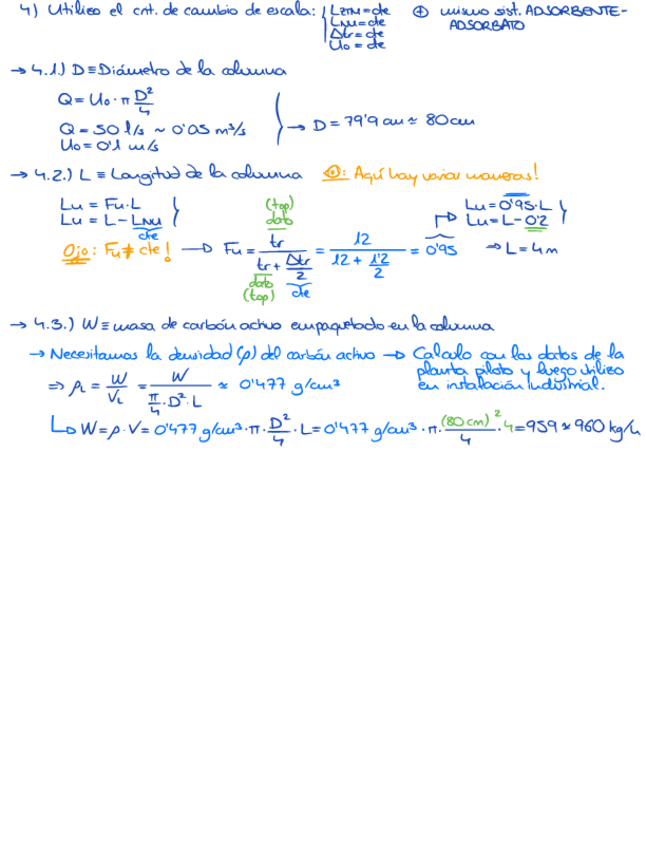 4) Utilizo el crit. de cambio de escala: LZTM = cte ⊕ mismo sist. ADSORBENTE-
LNU = cte ADSORBATO
Δtr = cte
U0 = cte
→ 4.1.) D ≡ Diámetro de la columna
Q = U0 · π D²/4
Q = 50 l/s ~ 0'05 m³/s → D = 79'9 cm ≈ 80 cm
U0 = 0'1 m/s
→ 4.2.) L ≡ Longitud de la columna ①: Aquí hay varias maneras!
Lu = Fu·L (top) Lu = 0'95·L
Lu = L - LNU dato Lu = L - 0'2
cte
Ojo: Fu ≠ cte! → Fu = tr / (tr + Δtr/2) = 12 / (12 + 1'2/2) = 0'95 → L = 4 m
dato cte
(top)
→ 4.3.) W ≡ masa de carbón activo empaquetado en la columna
→ Necesitamos la densidad (ρ) del carbón activo → Calculo con los datos de la
planta piloto y luego utilizo
en instalación industrial.
⇒ ρL = W/VL = W / (π/4 · D² · L) ≈ 0'477 g/cm³
↳ W = ρ·V = 0'477 g/cm³ · π · D²/4 · L = 0'477 g/cm³ · π · (80 cm)²/4 · 4 = 959 ≈ 960 kg/h